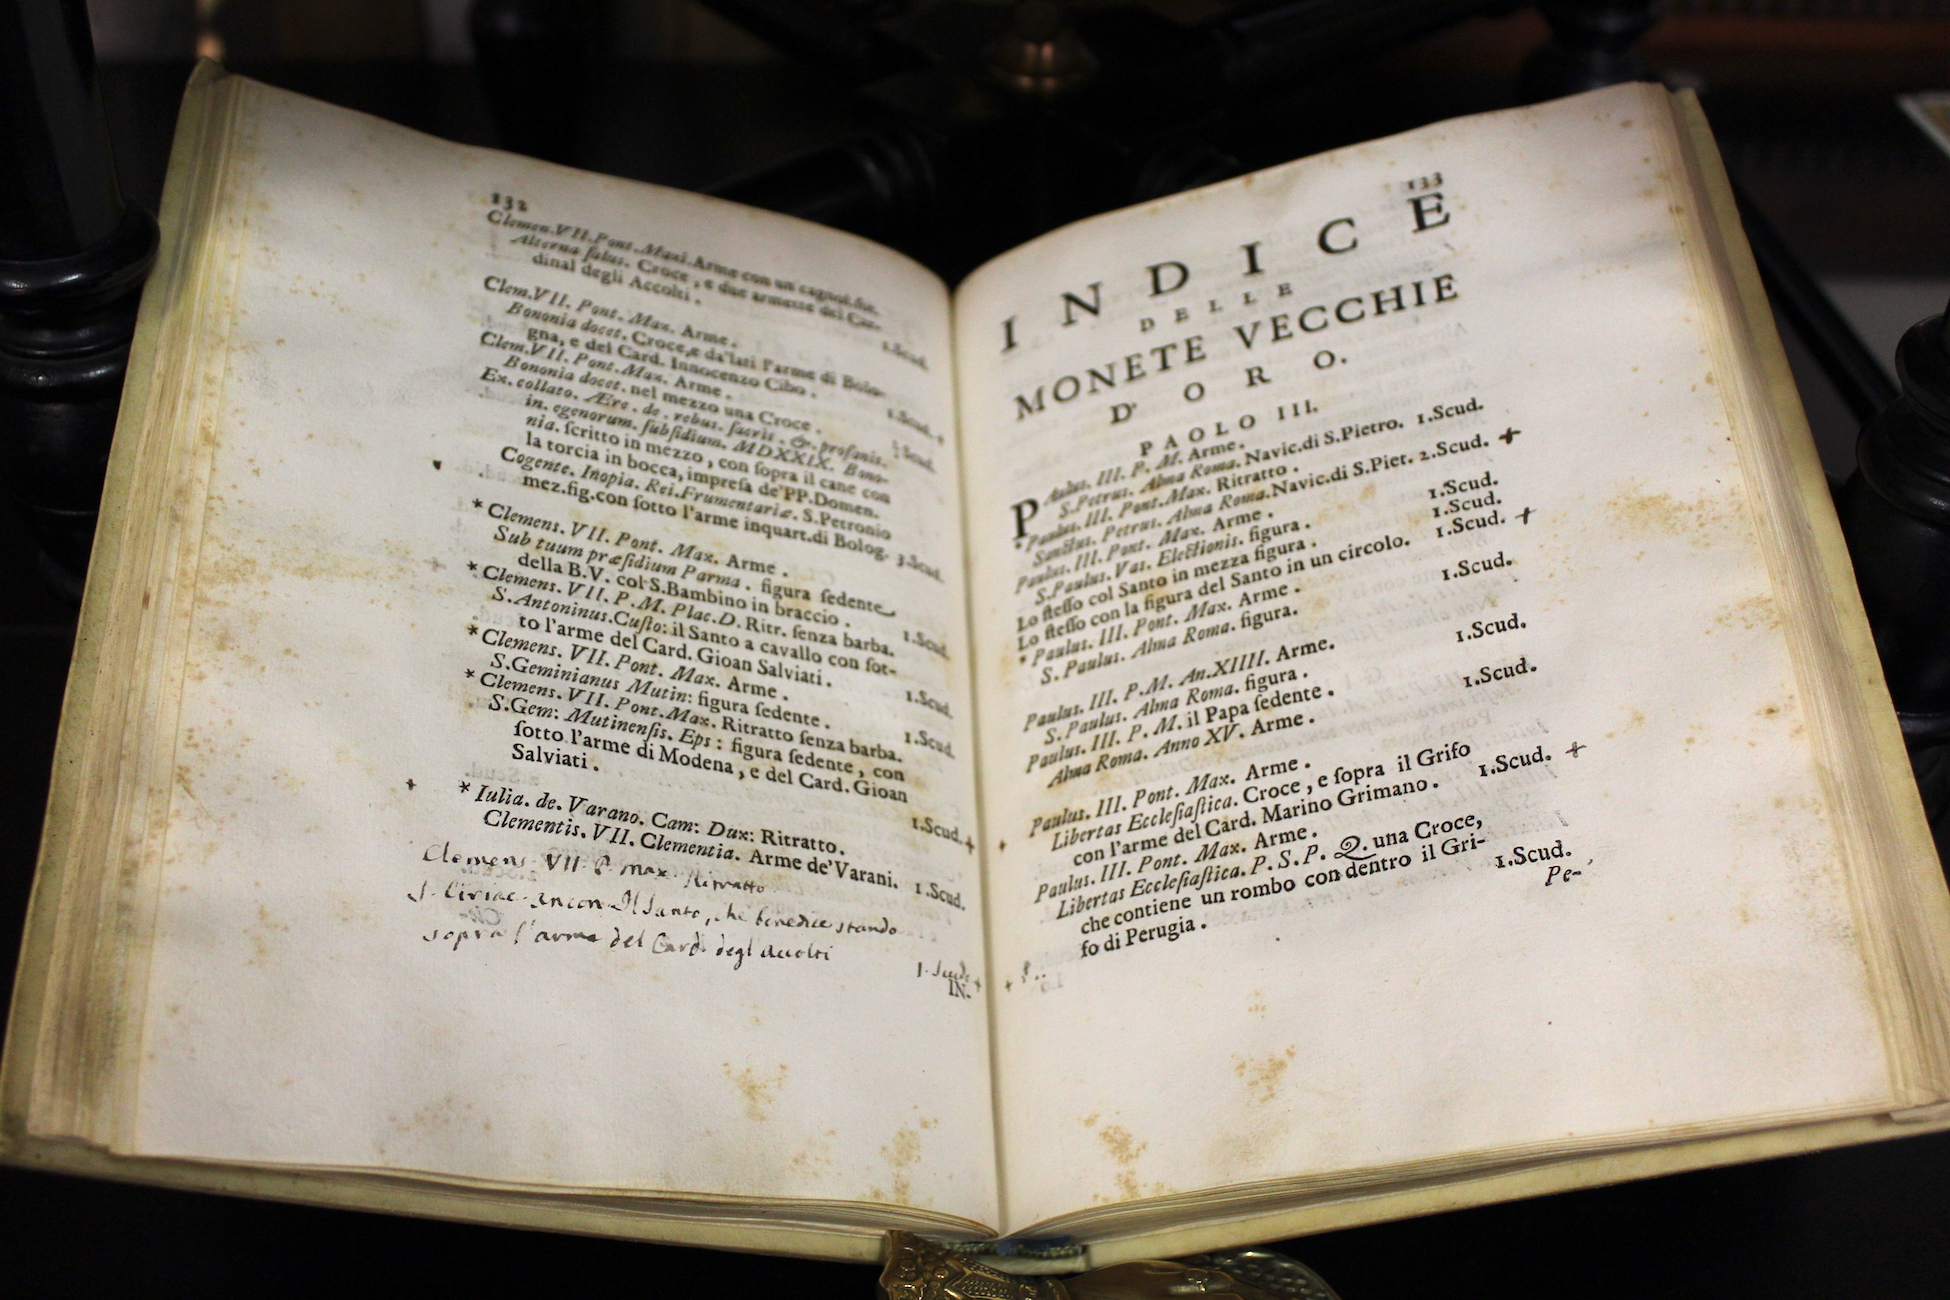 132
Clemen.VII.Pont.Maxi.Arme con un cagnol.sot.
Alterna ſalus. Croce, e due armette del Car-
dinal degli Accolti. 1.Scud.
Clem.VII. Pont. Max. Arme.
Bononia docet. Croce,e da'lati l'arme di Bolo-
gna, e del Card. Innocenzo Cibo. 1.Scud.
Clem.VII. Pont.Max. Arme.
Bononia docet. nel mezzo una Croce. Scud.
Ex. collato. Ære. de. rebus. ſacris. &. profanis.
in. egenorum. ſubſidium. MDXXIX. Bono-
nia. ſcritto in mezzo, con ſopra il cane con
la torcia in bocca, impreſa de'PP.Domen.
Cogente. Inopia. Rei.Frumentariæ. S.Petronio
mez.fig.con ſotto l'arme inquart.di Bolog. 3.Scud.
* Clemens. VII. Pont. Max. Arme.
Sub tuum præſidium Parma. figura ſedente
della B.V. col S.Bambino in braccio. 1.Scud.
* Clemens. VII. P.M. Plac.D. Ritr. ſenza barba.
S.Antoninus.Cuſto: il Santo a cavallo con ſot-
to l'arme del Card. Gioan Salviati. 1.Scud.
* Clemens. VII. Pont. Max. Arme.
S.Geminianus Mutin: figura ſedente. 1.Scud.
* Clemens. VII. Pont.Max. Ritratto ſenza barba.
S.Gem: Mutinenſis. Eps: figura ſedente, con
ſotto l'arme di Modena, e del Card. Gioan
Salviati. 1.Scud. +
* Iulia. de. Varano. Cam: Dux: Ritratto.
Clementis. VII. Clementia. Arme de'Varani. 1.Scud.
Clemens VII P. Max. Ritratto
S. Ciriac. Ancon Il Santo, che benedice stando
sopra l'arme del Card. degl Accolti
1. Scudo +
IN.
133
INDICE
DELLE
MONETE VECCHIE
D'ORO.
PAOLO III.
Paulus. III. P. M. Arme.
S.Petrus. Alma Roma. Navic.di S.Pietro. 1.Scud.
* Paulus. III. Pont.Max. Ritratto.
Sanctus. Petrus. Alma Roma.Navic.di S.Piet. 2.Scud. +
Paulus. III. Pont. Max. Arme.
S.Paulus. Vas. Electionis. figura. 1.Scud.
Lo ſteſſo col Santo in mezza figura. 1.Scud.
Lo ſteſſo con la figura del Santo in un circolo. 1.Scud. +
* Paulus. III. Pont. Max. Arme.
S. Paulus. Alma Roma. figura. 1.Scud.
Paulus. III. P.M. An.XIIII. Arme.
S. Paulus. Alma Roma. figura. 1.Scud.
Paulus. III. P. M. il Papa ſedente.
Alma Roma. Anno XV. Arme. 1.Scud.
Paulus. III. Pont. Max. Arme.
Libertas Eccleſiaſtica. Croce, e ſopra il Grifo
con l'arme del Card. Marino Grimano. 1.Scud. +
Paulus. III. Pont. Max. Arme.
Libertas Eccleſiaſtica. P. S. P. Q. una Croce,
che contiene un rombo con dentro il Gri-
fo di Perugia. 1.Scud.
Pe-